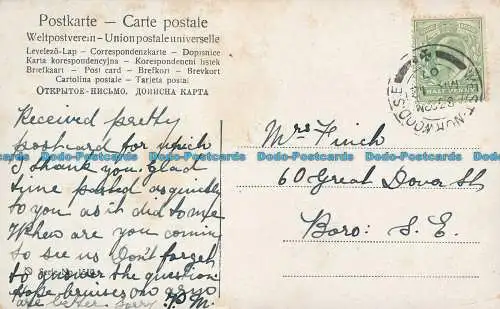 Postkarte – Carte postale
Weltpostverein – Union postale universelle
Levelező-Lap – Correspondenzkarte – Dopisnice
Karta korespondencyjna – Korespondenčni listek
Briefkaart – Post card – Brefkort – Brevkort
Cartolina postale – Tarjeta postal
ОТКРЫТОЕ-ПИСЬМО, ДОПИСНА КАРТА
Received pretty
postcard for which
I thank you. Glad
time passed as quickly
to you as it did to me
When are you coming
to see us Don't forget
to answer the question
Hope bruises on arm
are better sorry M.
Serie No
Mrs Finch
60 Great Dover St
Boro: S. E.
HALF PENNY
WEST NORWOOD S.E
Bodo-Postcards Bodo-Postcards Bodo-Postcards Bodo-Postcards Bodo-Postcards Bodo-Postcards